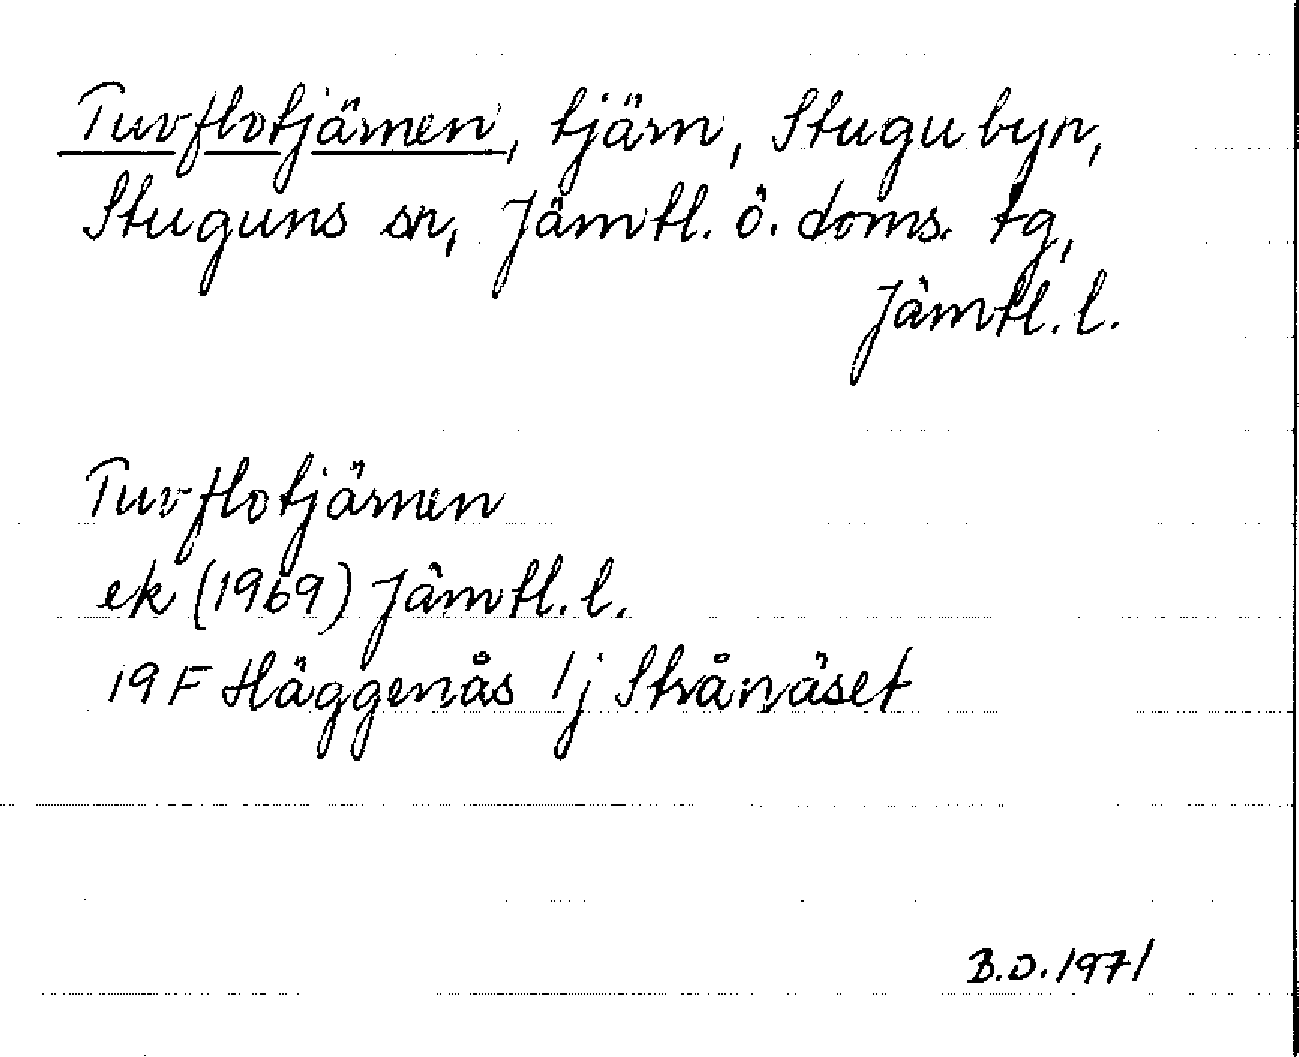 Tuvflotjärnen, tjärn, Stugubyn,
Stuguns sn, Jämtl. ö. doms. tg,
Jämtl. l.
Tuvflotjärnen
ek (1969) Jämtl. l.
19 F Häggenås 1j Strånäset
B.O. 1971